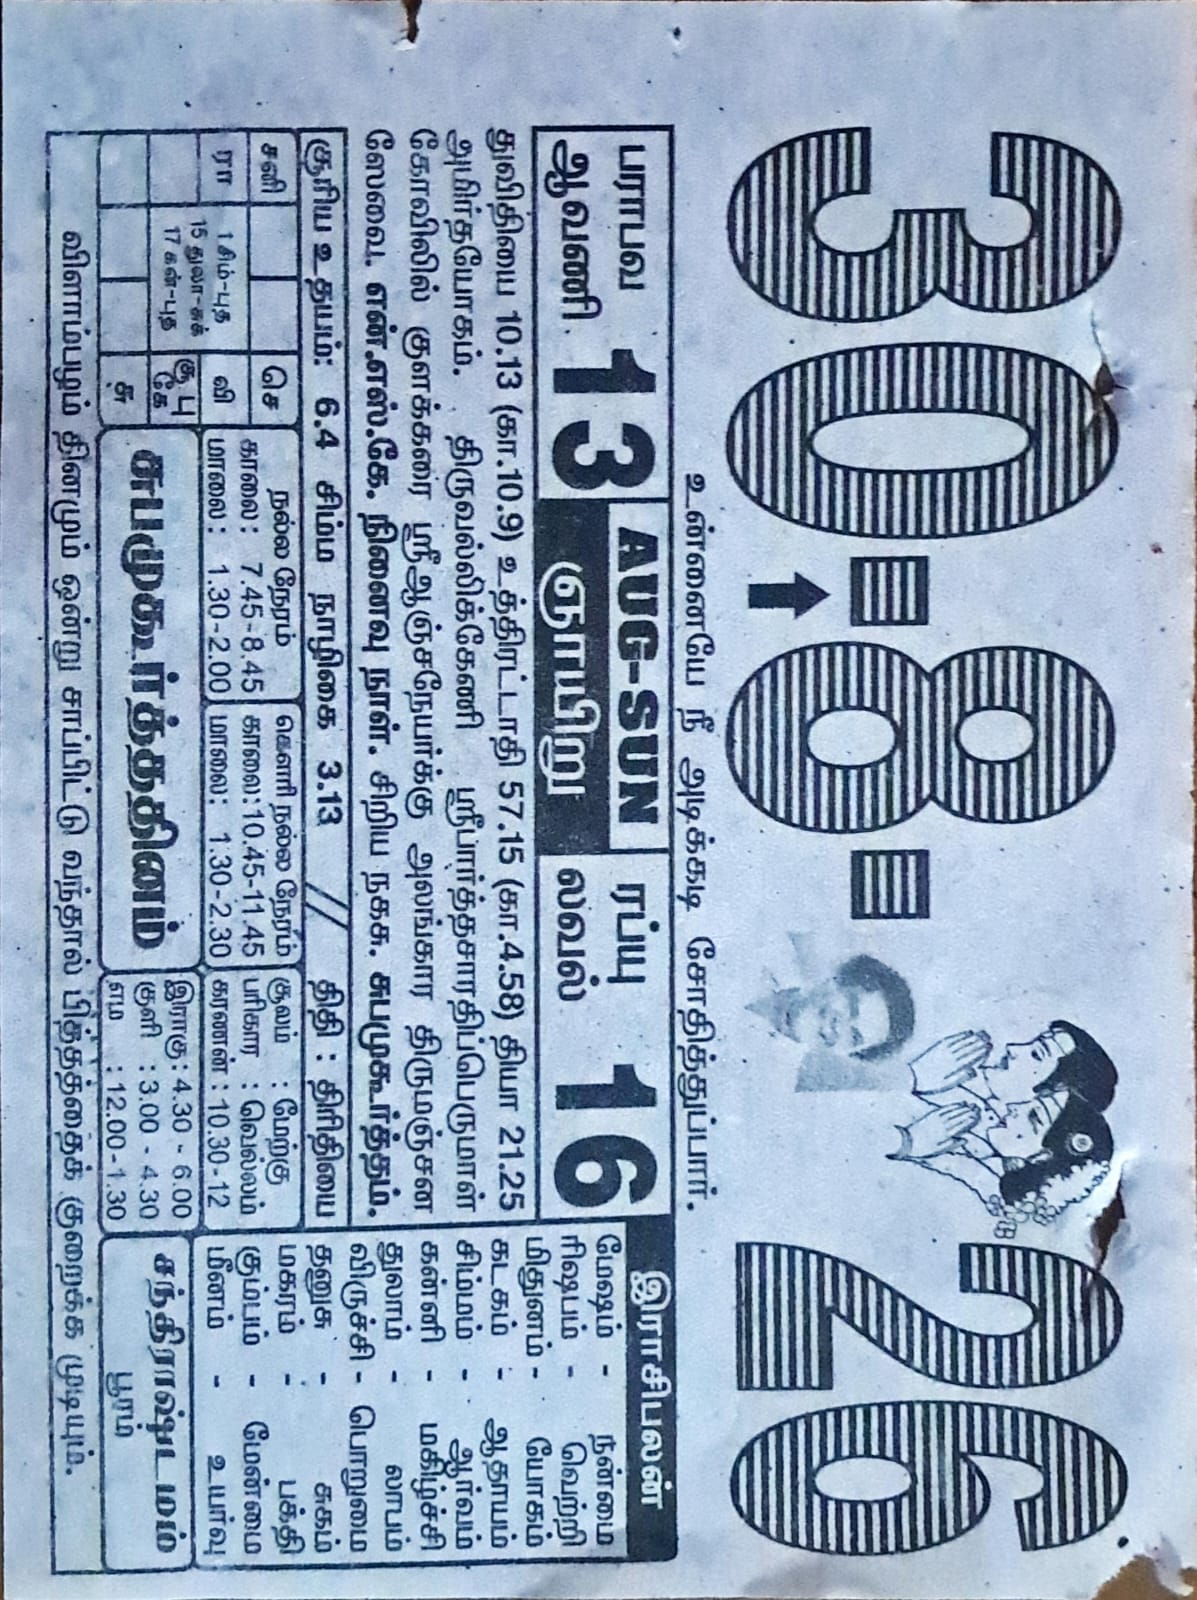 30-8-26
உன்னையே நீ அடிக்கடி சோதித்துப்பார்.
பராபவ
ஆவணி 13
AUG-SUN
ஞாயிறு
ரப்யு
லவல் 16
துவிதியை 10.13 (கா.10.9) உத்திரட்டாதி 57.15 (கா.4.58) தியா 21.25
அமிர்தயோகம். திருவல்லிக்கேணி ஸ்ரீபார்த்தசாரதிப்பெருமாள்
கோவிலில் குளக்கரை ஸ்ரீஆஞ்சநேயர்க்கு அலங்கார திருமஞ்சன
ஸேவை. என்.எஸ்.கே. நினைவு நாள். சிறிய நகசு. சுபமுகூர்த்தம்.
சூரிய உதயம்: 6.4 சிம்ம நாழிகை 3.13 // திதி : திரிதியை
சனி
செ
ரா
1 சிம்-புத
15 துலா-சுக்
17 கன்-புத
வி
சூ பு
கே
சு
நல்ல நேரம்
காலை: 7.45-8.45
மாலை: 1.30-2.00
கௌரி நல்ல நேரம்
காலை:10.45-11.45
மாலை: 1.30-2.30
சூலம் : மேற்கு
பரிகார : வெல்லம்
கரணன் : 10.30-12
சுபமுகூர்த்ததினம்
இராகு : 4.30 - 6.00
குளி : 3.00 - 4.30
எம : 12.00-1.30
இராசிபலன்
மேஷம் - நன்மை
ரிஷபம் - வெற்றி
மிதுனம் - யோகம்
கடகம் - ஆதாயம்
சிம்மம் - ஆர்வம்
கன்னி - மகிழ்ச்சி
துலாம் - லாபம்
விருச்சி - பொறுமை
தனுசு - சுகம்
மகரம் - பக்தி
கும்பம் - மேன்மை
மீனம் - உயர்வு
சந்திராஷ்டமம்
பூரம்
விளாம்பழம் தினமும் ஒன்று சாப்பிட்டு வந்தால் பித்தத்தைக் குறைக்க முடியும்.